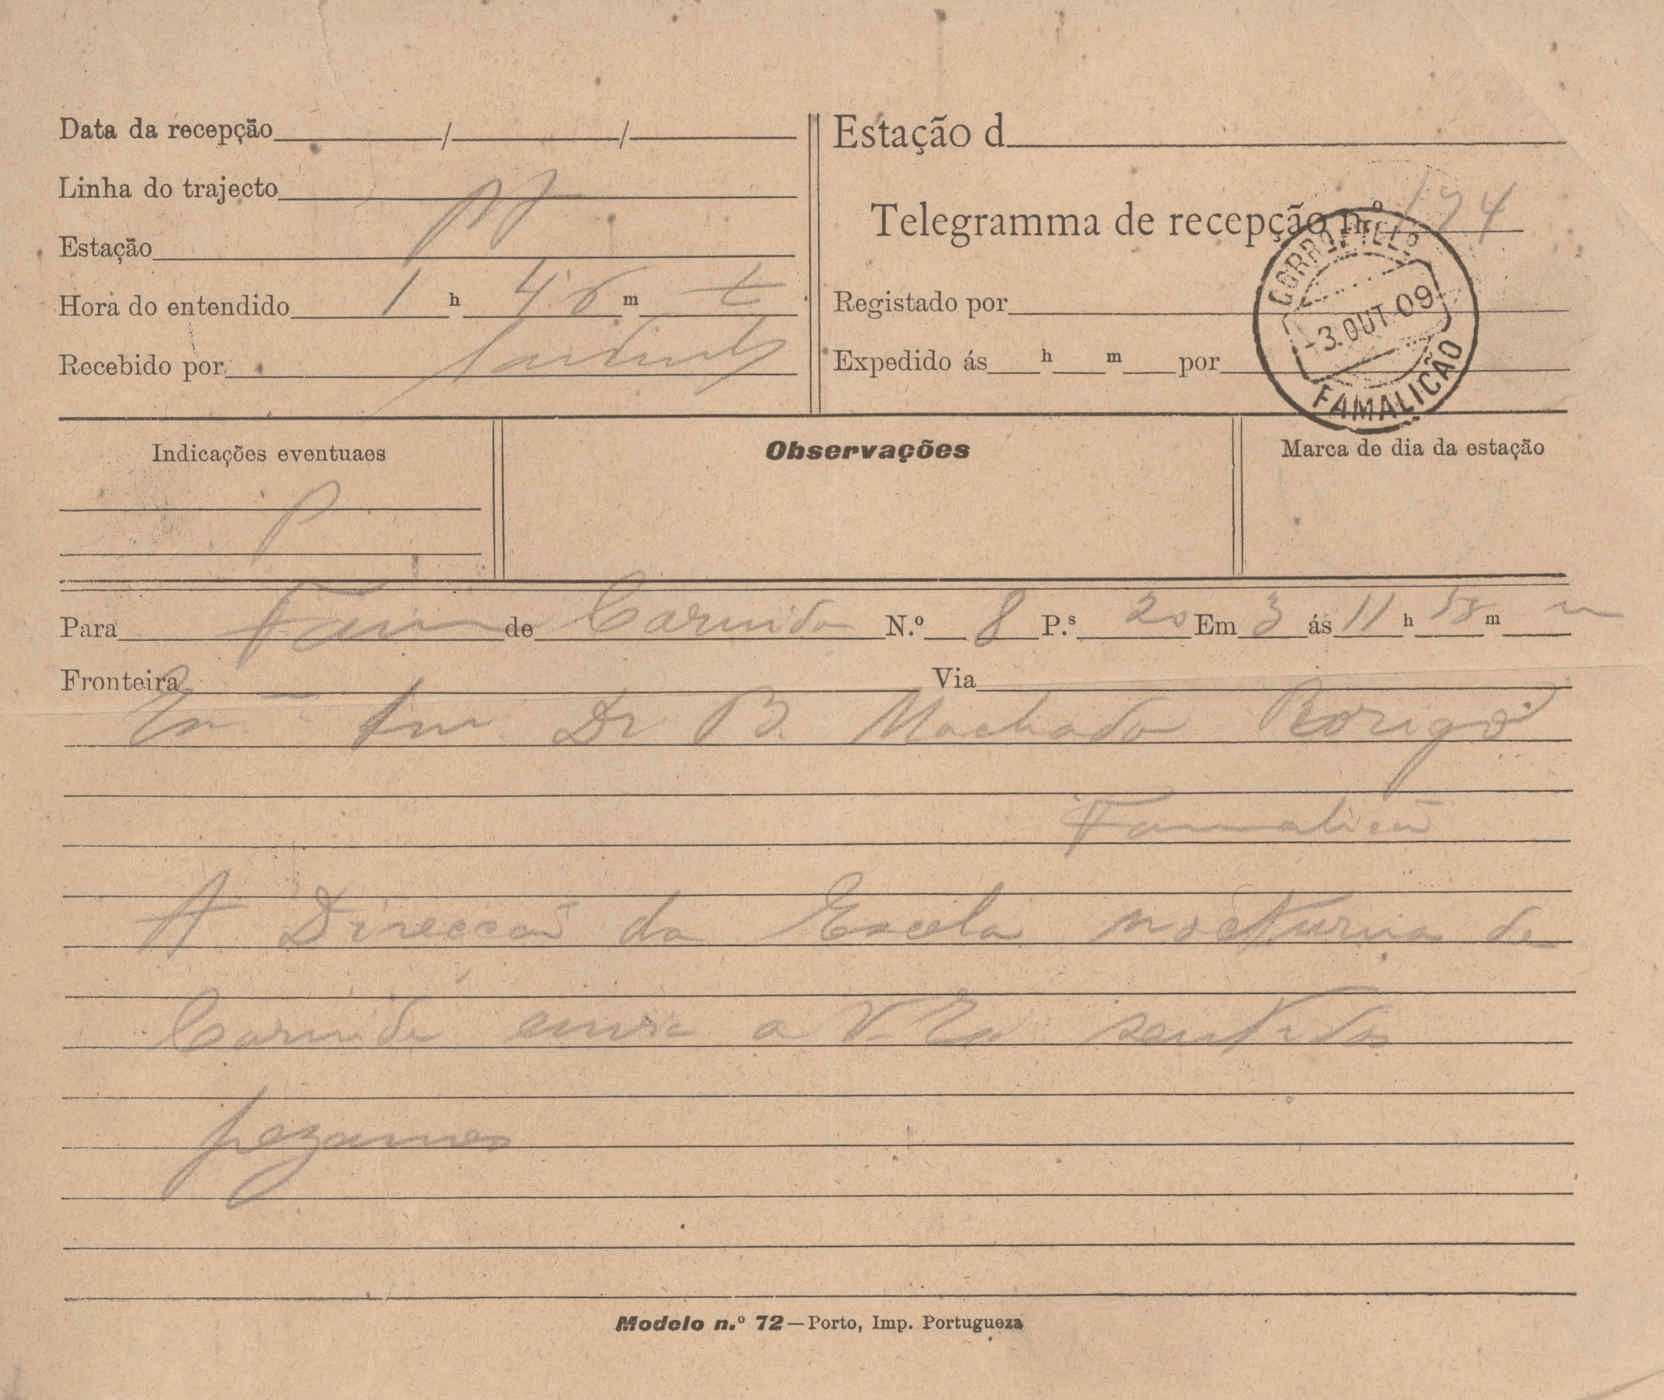 Data da recepção / /
Linha do trajecto
Estação
Hora do entendido 1 h 46 m t
Recebido por
Estação d
Telegramma de recepção n.º 174
Registado por
Expedido ás h m por
CORRO E TELLº
-3.OUT.09
FAMALICÃO
Indicações eventuaes
P
Observações
Marca de dia da estação
Para Fam de Carnide N.º 8 P.s 20 Em 3 ás 11 h 58 m m
Fronteira Via
Ex Snr Dr B. Machado
Famalicão
A Direcção da Escola nocturna de
Carnide envia a V. Exa sentidos
pezames
Modelo n.º 72—Porto, Imp. Portugueza